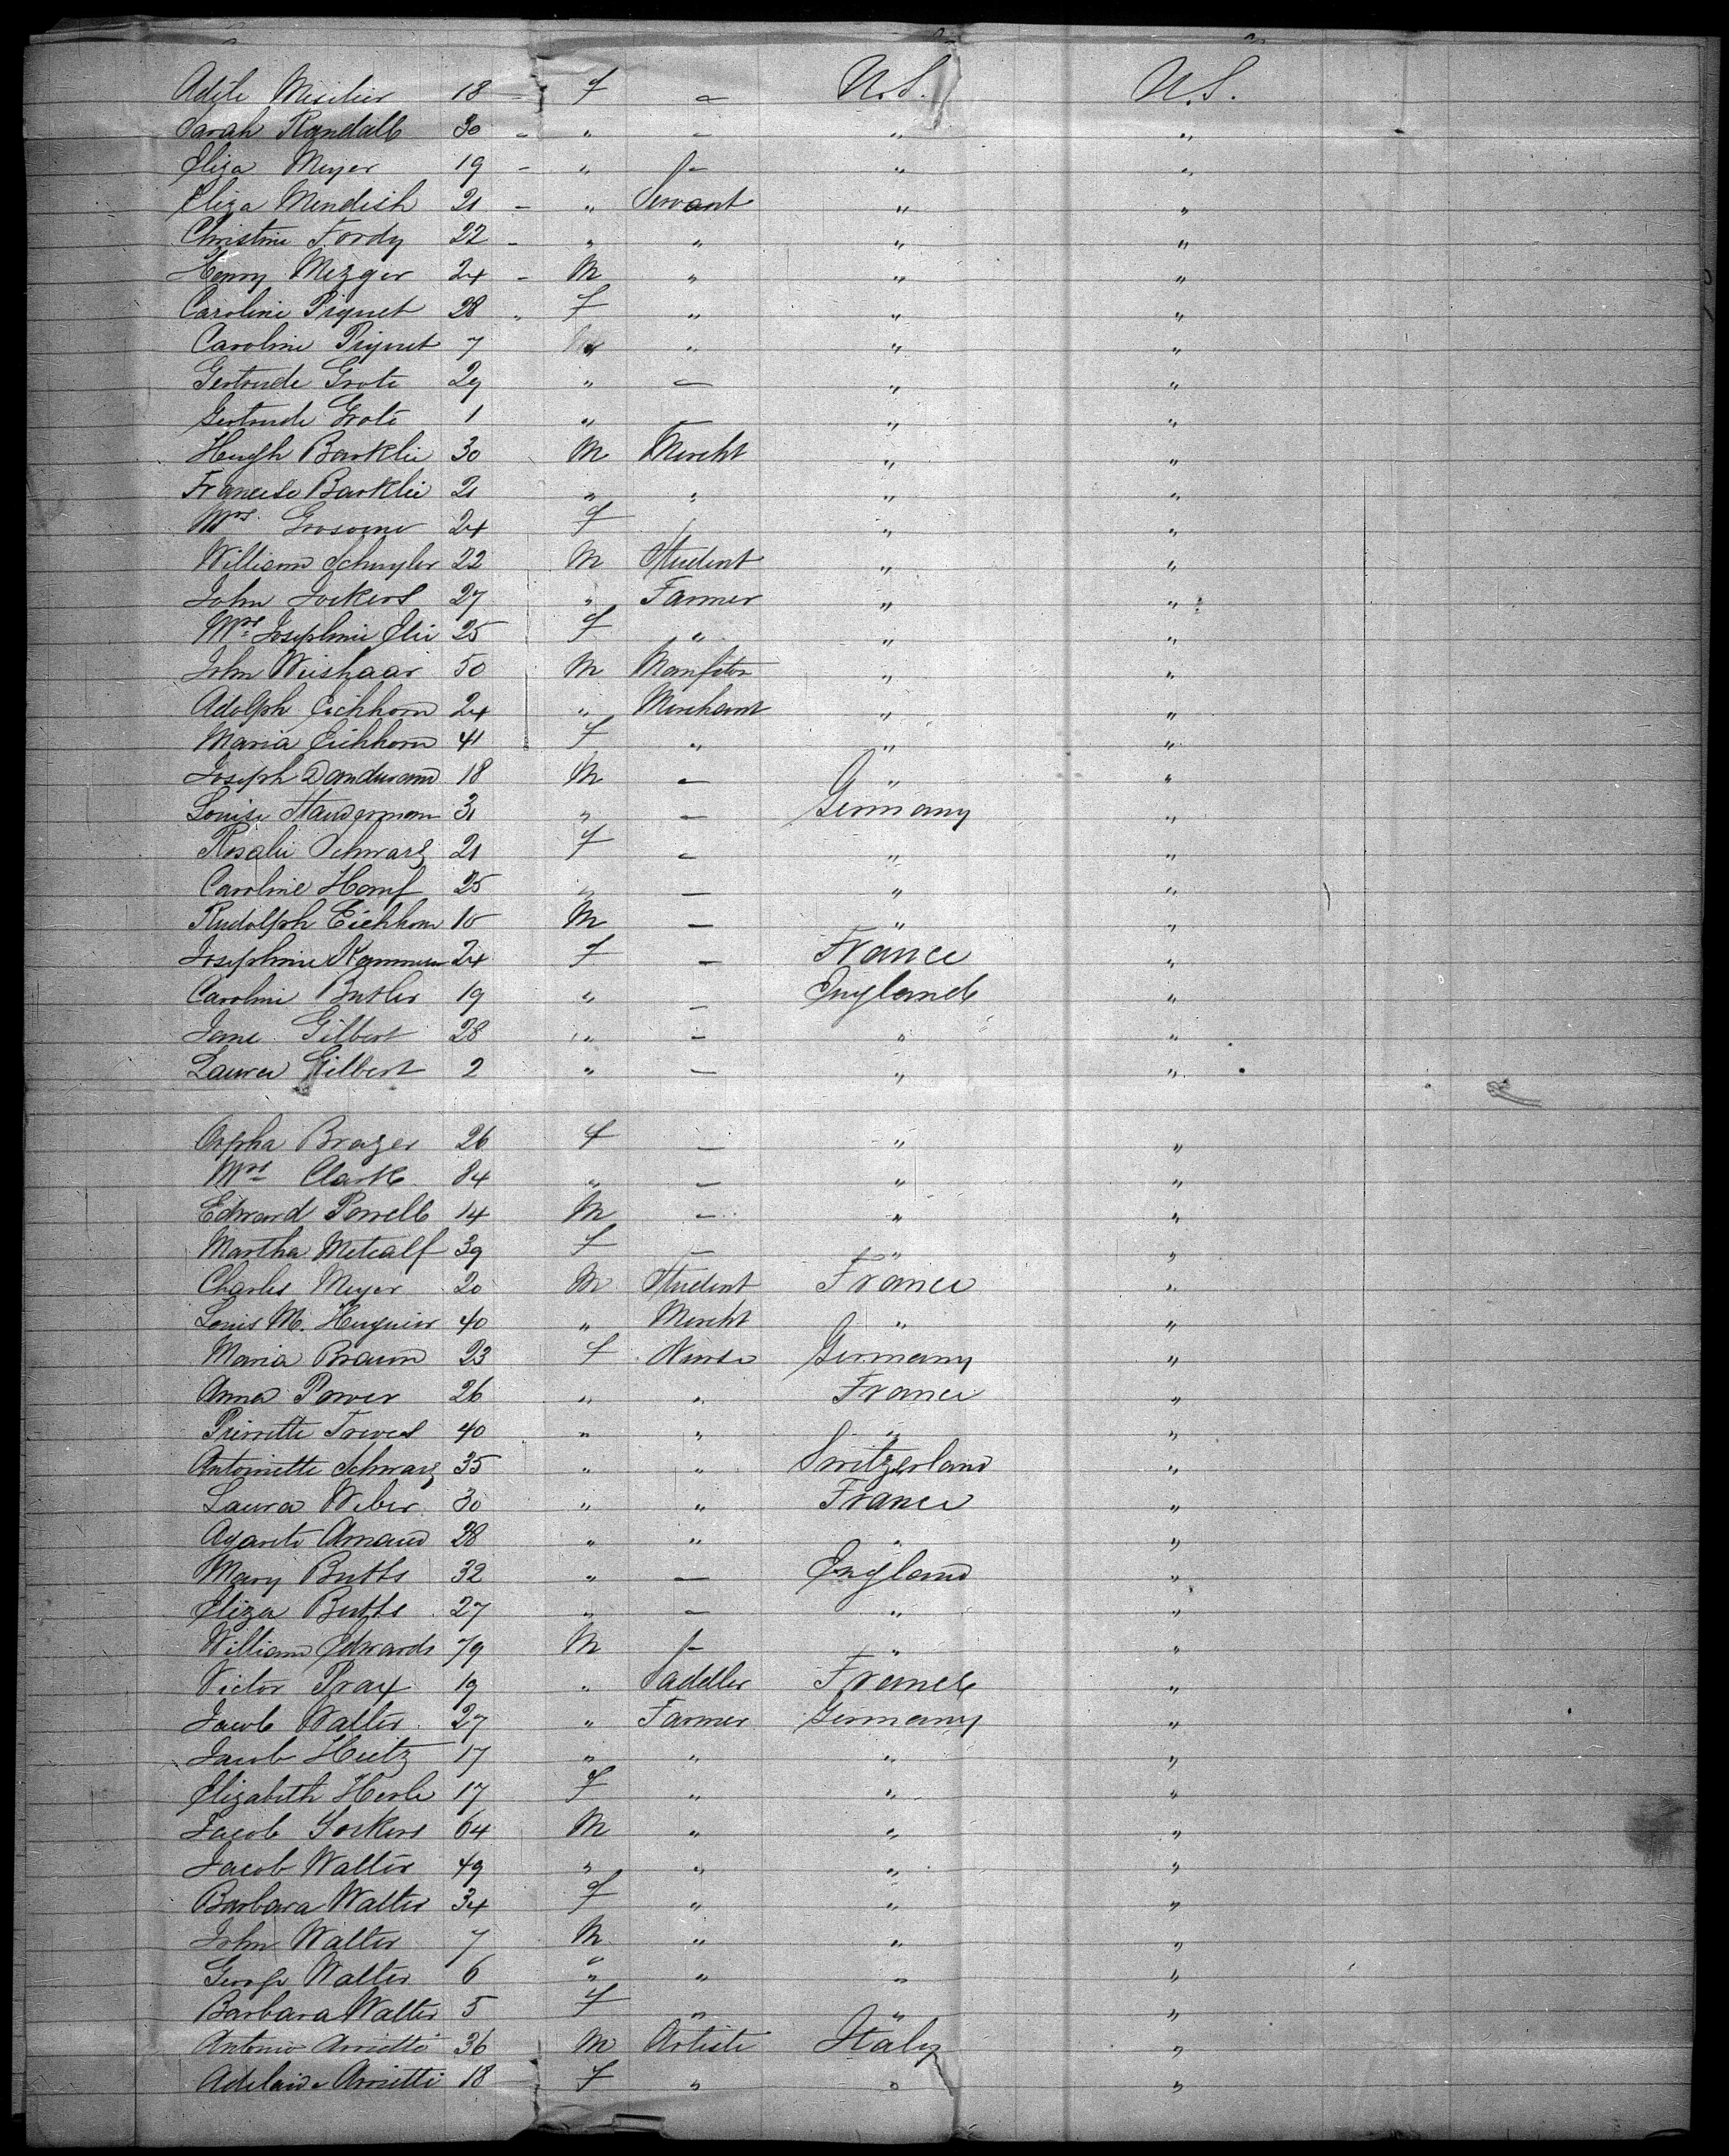 Adele Mesilier 18 - F - U.S. U.S.
Sarah Randall 30 - " - " "
Eliza Meyer 19 - " - " "
Eliza Mendish 21 - " Servant " "
Christine Fordy 22 - " " " "
Henry Mezger 24 - M " " "
Caroline Piguet 28 " F " " "
Caroline Piguet 7 " " "
Gertrude Grote 29 " - " "
Gertrude Grote 1 " - " "
Hugh Barklie 30 M Mercht " "
Barklie 21 " " " "
Mrs. Grosome 24 F " "
William Schuyler 22 M Student " "
John Jockers 27 " Farmer " "
Mrs Josephine Elie 25 F " " "
John Weishaar 50 M " "
Adolph Eichhorn 24 " Merchant " "
Maria Eichhorn 41 F " " "
Joseph Dandurand 18 M - " "
Louise 31 " - Germany "
Rosalie Schwarz 21 F - " "
Caroline Hamf 25 " - " "
Rudolph Eichhorn 10 M - " "
Josephine 24 F - France "
Caroline Butler 19 " - England "
Jane Gilbert 28 " - " "
Laura Gilbert 2 " - " "
Orpha Brazer 26 F - " "
Mrs Clark 84 " - " "
Edward Powell 14 M - " "
Martha Metcalf 39 F - " "
Charles Meyer 20 M Student France "
Louis M. Huguier 40 " Mercht " "
Maria Braun 23 F Nurse Germany "
Anna Power 26 " " France "
Pierrette Treves 40 " " " "
Antoinette Schwarz 35 " " Switzerland "
Laura Weber 30 " " France "
Arnaud 28 " " " "
Mary Butts 32 " - England "
Eliza Butts 27 " - " "
William Edwards 79 M - " "
Victor Pray 19 " Sadeller France "
Jacob Walter 27 " Farmer Germany "
Jacob Heitz 17 " " " "
Elizabeth Herle 17 F " " "
Jacob Jockers 64 M " " "
Jacob Walter 49 " " " "
Barbara Walter 34 F " " "
John Walter 7 M " " "
George Walter 6 " " " "
Barbara Walter 5 F " " "
Antonio Arrietti 36 M Artiste Italy "
Adelaide Arrietti 18 F " " "